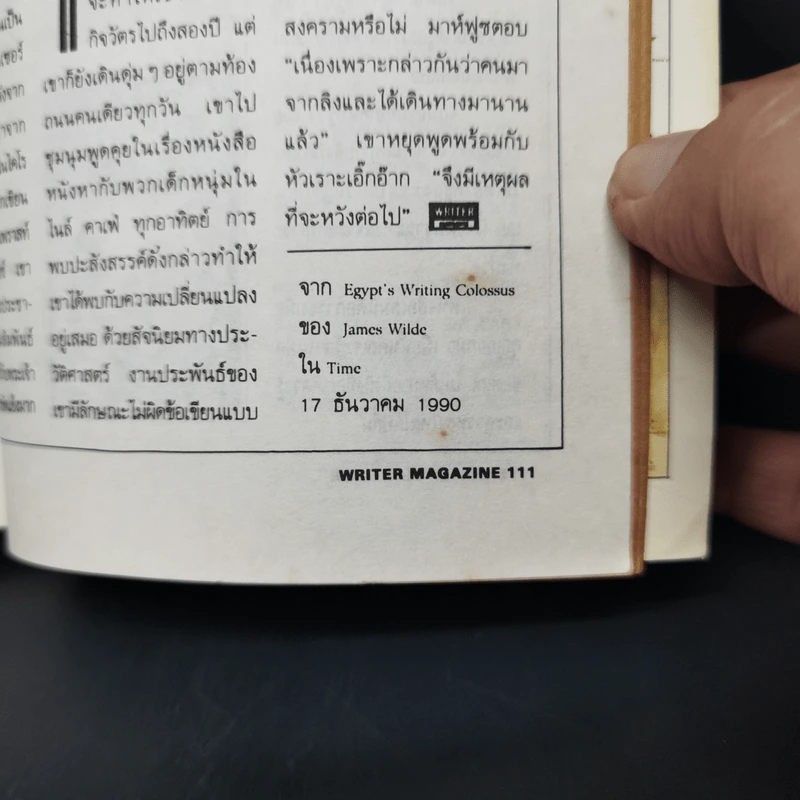 กิจวัตรไปถึงสองปี แต่
เขาก็ยังเดินดุ่ม ๆ อยู่ตามท้อง
ถนนคนเดียวทุกวัน เขาไป
ชุมนุมพูดคุยในเรื่องหนังสือ
หนังหากับพวกเด็กหนุ่มใน
ไนล์ คาเฟ่ ทุกอาทิตย์ การ
พบปะสังสรรค์ดังกล่าวทำให้
เขาได้พบกับความเปลี่ยนแปลง
อยู่เสมอ ด้วยสัจนิยมทางประ-
วัติศาสตร์ งานประพันธ์ของ
เขามีลักษณะไม่ผิดข้อเขียนแบบ
สงครามหรือไม่ มาห์ฟูซตอบ
“เนื่องเพราะกล่าวกันว่าคนมา
จากลิงและได้เดินทางมานาน
แล้ว” เขาหยุดพูดพร้อมกับ
หัวเราะเอิ๊กอ๊าก “จึงมีเหตุผล
ที่จะหวังต่อไป” WRITER
จาก Egypt's Writing Colossus
ของ James Wilde
ใน Time
17 ธันวาคม 1990
WRITER MAGAZINE 111